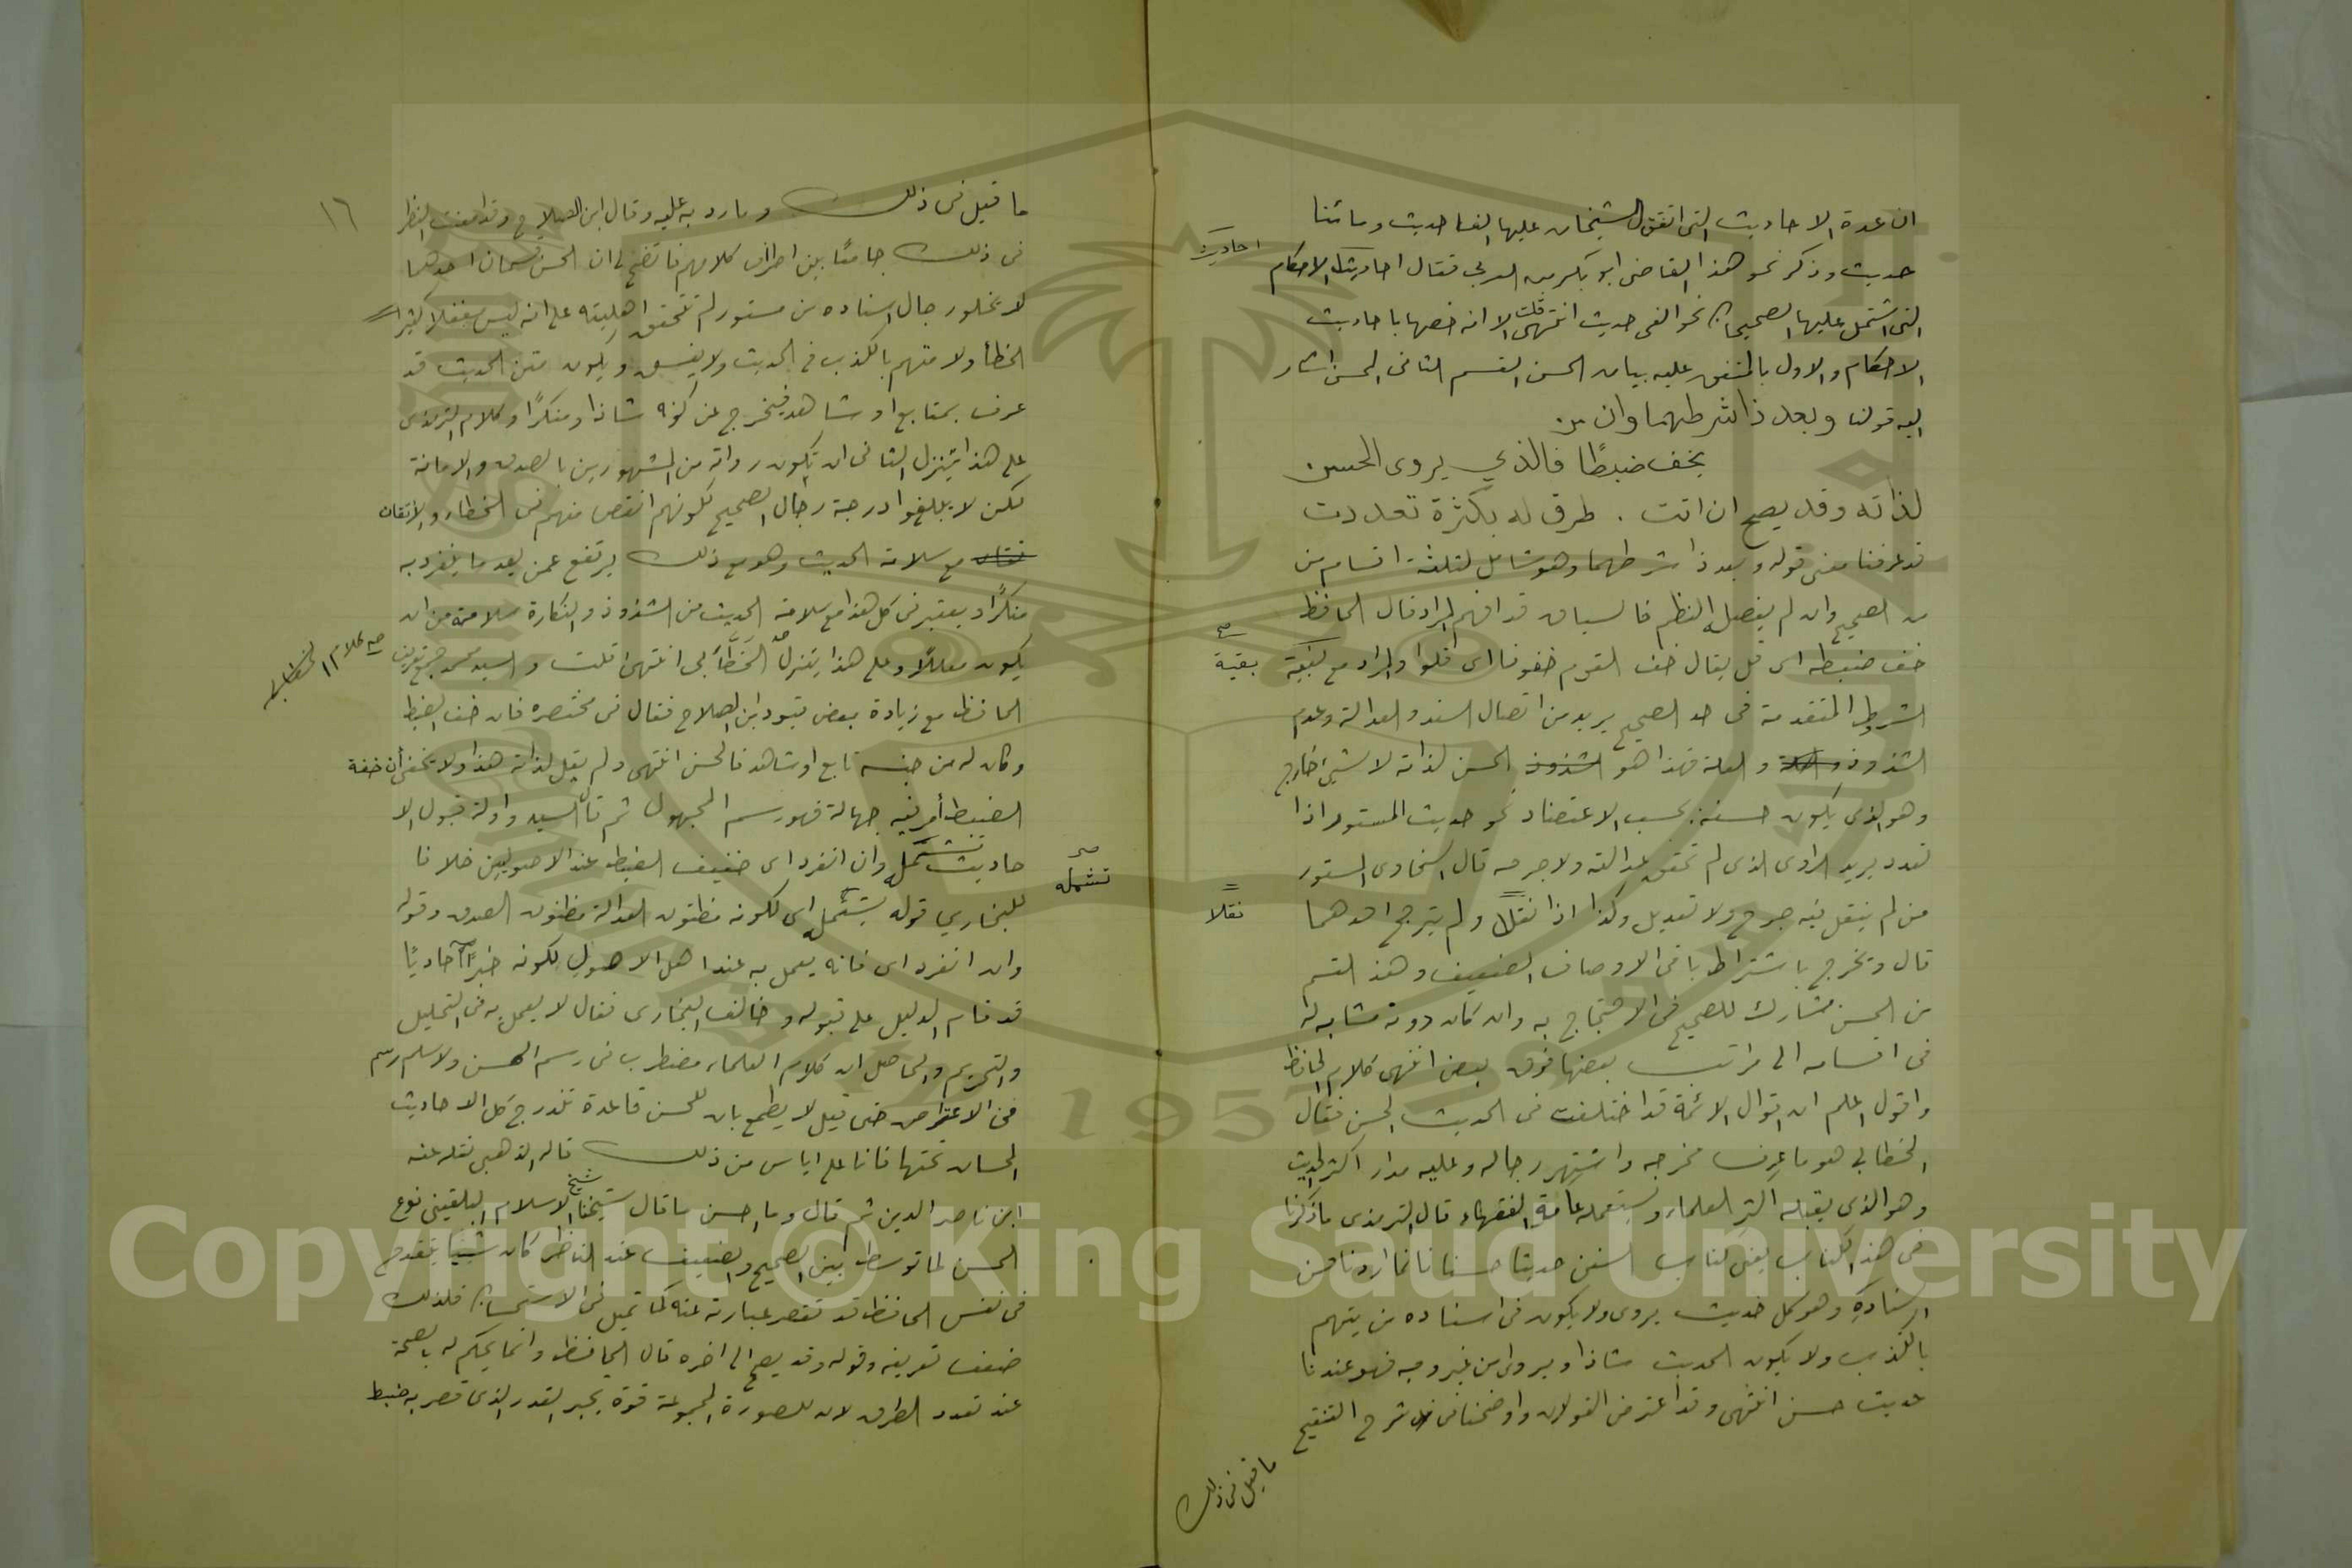 ان عدة الاحاديث التى اتفق الشيخان عليها الفا حديث ومائتا
حديث وذكر نحو هذا القاضى ابو بكر بن العربى فقال احاديث الاحكام
احاديث
التى اشتمل عليها الصحيحان نحو الفى حديث انتهى قلت الا انه خصها باحاديث
الاحكام والاول بالمتفق عليه بيان الحسن القسم الثانى الحسن اشار
اليه قولنا وبعد ذا شرطهما وان من
يخف ضبطًا فالذي يروى الحسن
لذاته وقد يصح ان اتت . طرق له بكثرة تعددت
قد عرفنا معنى قوله وبعد ذا شرطهما وهو شامل لثلثة اقسام من
من الصحيح وان لم يفصل النظم فالسياق قد افهم المراد قال الحافظ
خف ضبطه اى قل يقال خف القوم خفوفا اى قلوا والمراد مع بقية
صح
بقية
الشروط المتقدمة فى حد الصحيح يريد من اتصال السند والعدالة وعدم
الشذوذ والعلة فهذا هو الحسن لذاته لا لشيئ خارج
وهو الذى يكون حسنه بحسب الاعتضاد نحو حديث المستور اذا
تعدد يريد الراوى الذى لم تحقق عدالته ولا جرحه قال السخاوى المستور
من لم ينقل فيه جرح ولا تعديل وكذا اذا نقلا ولم يترجح احدهما
نقلا
قال وتخرج باشتراط باقى الاوصاف الضعيف وهذ القسم
من الحسن مشارك للصحيح فى الاحتجاج به وان كان دونه مشابه له
فى اقسامه الى مراتب بعضها فوق بعض انتهى كلام الحافظ
واقول اعلم ان اقوال الائمة قد اختلفت فى الحديث الحسن فقال
الخطابي هو ما عرف مخرجه واشتهر رجاله وعليه مدار اكثر الحديث
وهو الذى يقبله اكثر العلماء ويستعمله عامة الفقهاء قال الترمذى ما ذكرنا
فى هذ الكتاب يعنى كتاب السنن حديثا حسنا فانما اردنا حسن
اسناده وهو كل حديث يروى ولا يكون فى اسناده من يتهم
بالكذب ولا يكون الحديث شاذا ويروى من غير وجه فهو عندنا
حديث حسن انتهى وقد اعترض القولان واوضحنا فى شرح التنقيح
ما قيل فى ذلك
١٦
ما قيل فى ذلك وما رد به عليه وقال ابن الصلاح وقد امعنت النظر
فى ذلك جامعًا بين اطراف كلامهم فاتضح لى ان الحسن قسمان احدهما
لا تخلو رجال اسناده من مستور لم تتحقق اهليته على انه ليس مغفلا كثير
الخطأ ولا متهم بالكذب فى الحديث ولا يفسق ويكون متن الحديث قد
عرف بمتابع او شاهد فيخرج عن كونه شاذا ومنكرًا وكلام الترمذى
على هذا يتنزل الثانى ان يكون رواته من المشهورين بالصدق والامانة
لكن لا يبلغوا درجة رجال الصحيح لكونهم انقص منهم فى الخطاء والاتقان
مع سلامة الحديث وهو مع ذلك يرتفع عمن يعد ما ينفرد به
منكرًا ويعتبر فى كل هذا مع سلامة الحديث من الشذوذ والنكارة سلامته من ان
يكون معللًا وعلى هذا يتنزل الخطأبى انتهى قلت والسيد محمد جمع تعريف
صح كلام الخطابى
الحافظ مع زيادة بعض قيود ابن الصلاح فقال فى مختصره فان خف الضبط
وكان له من جنسه تابع او شاهد فالحسن انتهى ولم يقل لذاته هذا ولا يخفى أن خفة
الضبط أمر فيه جهالة فهو رسم المجهول ثم قال السيد وادلة قبول الا
حاديث تشمله وان انفرد اى خفيف الضبط عند الاصوليين خلافا
صح
تشمله
للبخاري قوله تشمله اى لكونه مظنون العدالة مظنون الصدق وقوله
وان انفرد اى فانه يعمل به عند اهل الاصول لكونه خبرًا آحاديًا
قد قام الدليل على قبوله وخالف البخارى فقال لا يعمل به فى التحليل
والتحريم والحاصل ان كلام العلماء مضطرب فى رسم الحسن ولا سلم رسم
فى الاعتراض حتى قيل لا يطمع بان للحسن قاعدة تندرج كل الاحاديث
الحسان تحتها فانا على اياس من ذلك قاله الذهبى نقله عنه
ابن ناصر الدين ثم قال وما احسن ما قال شيخنا شيخ الاسلام البلقينى نوع
الحسن لما توسط بين الصحيح والضعيف عند الناظر كان شيئا ينقدح
فى نفس الحافظ قد تقصر عبارته عنه كما قيل فى الاستحسان فلذلك
ضعف تعريفه وقوله وقد يصح الى اخره قال الحافظ وانما يحكم له بالصحة
عند تعدد الطرق لان للصورة المجموعة قوة يجبر القدر الذى قصر به ضبط
Copyright © King Saud University
1957